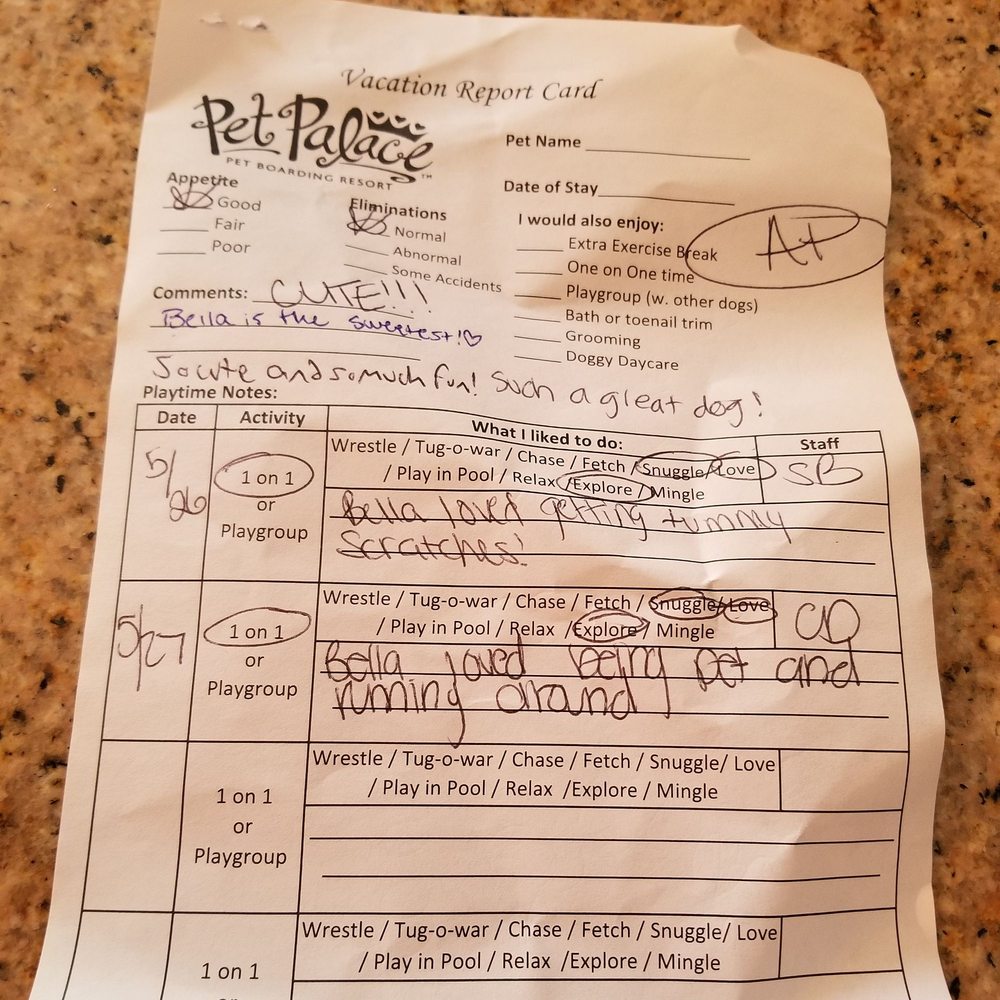 Vacation Report Card
Pet Palace™
PET BOARDING RESORT
Pet Name
Date of Stay
Appetite
Good
Fair
Poor
Eliminations
Normal
Abnormal
Some Accidents
I would also enjoy:
Extra Exercise Break
One on One time
Playgroup (w. other dogs)
Bath or toenail trim
Grooming
Doggy Daycare
Comments: CUTE!!!
Bella is the sweetest!♡
So cute and so much fun! Such a great dog!
Playtime Notes:
Date Activity What I liked to do: Staff
5/26
1 on 1
or
Playgroup
Wrestle / Tug-o-war / Chase / Fetch / Snuggle/ Love
/ Play in Pool / Relax /Explore / Mingle
SB
Bella loved getting tummy
scratches!
5/27
1 on 1
or
Playgroup
Wrestle / Tug-o-war / Chase / Fetch / Snuggle/ Love
/ Play in Pool / Relax /Explore / Mingle
Bella loved being pet and
running around
1 on 1
or
Playgroup
Wrestle / Tug-o-war / Chase / Fetch / Snuggle/ Love
/ Play in Pool / Relax /Explore / Mingle
1 on 1
Wrestle / Tug-o-war / Chase / Fetch / Snuggle/ Love
/ Play in Pool / Relax /Explore / Mingle